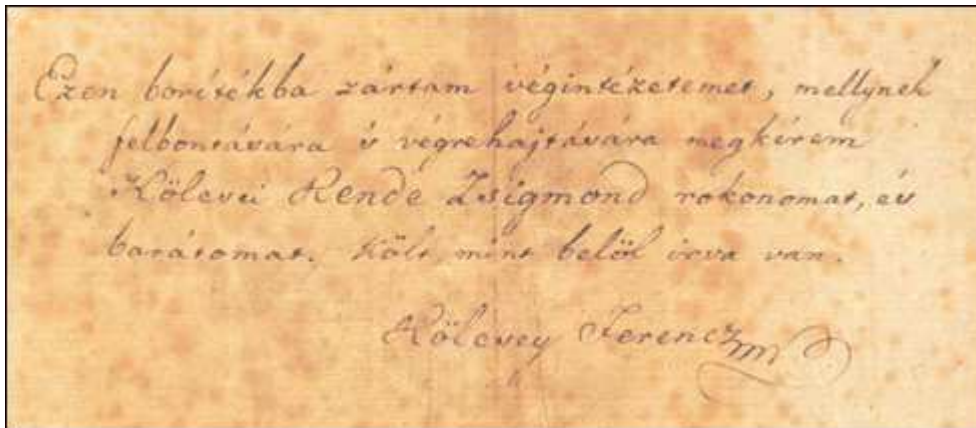 Ezen borítékba zártam végintézetemet, mellynek
felbontására 's végrehajtására megkérem
Kölcsei Kende Zsigmond rokonomat, és
barátomat. Költ, mint belől írva van.
Kölcsey Ferencz mp